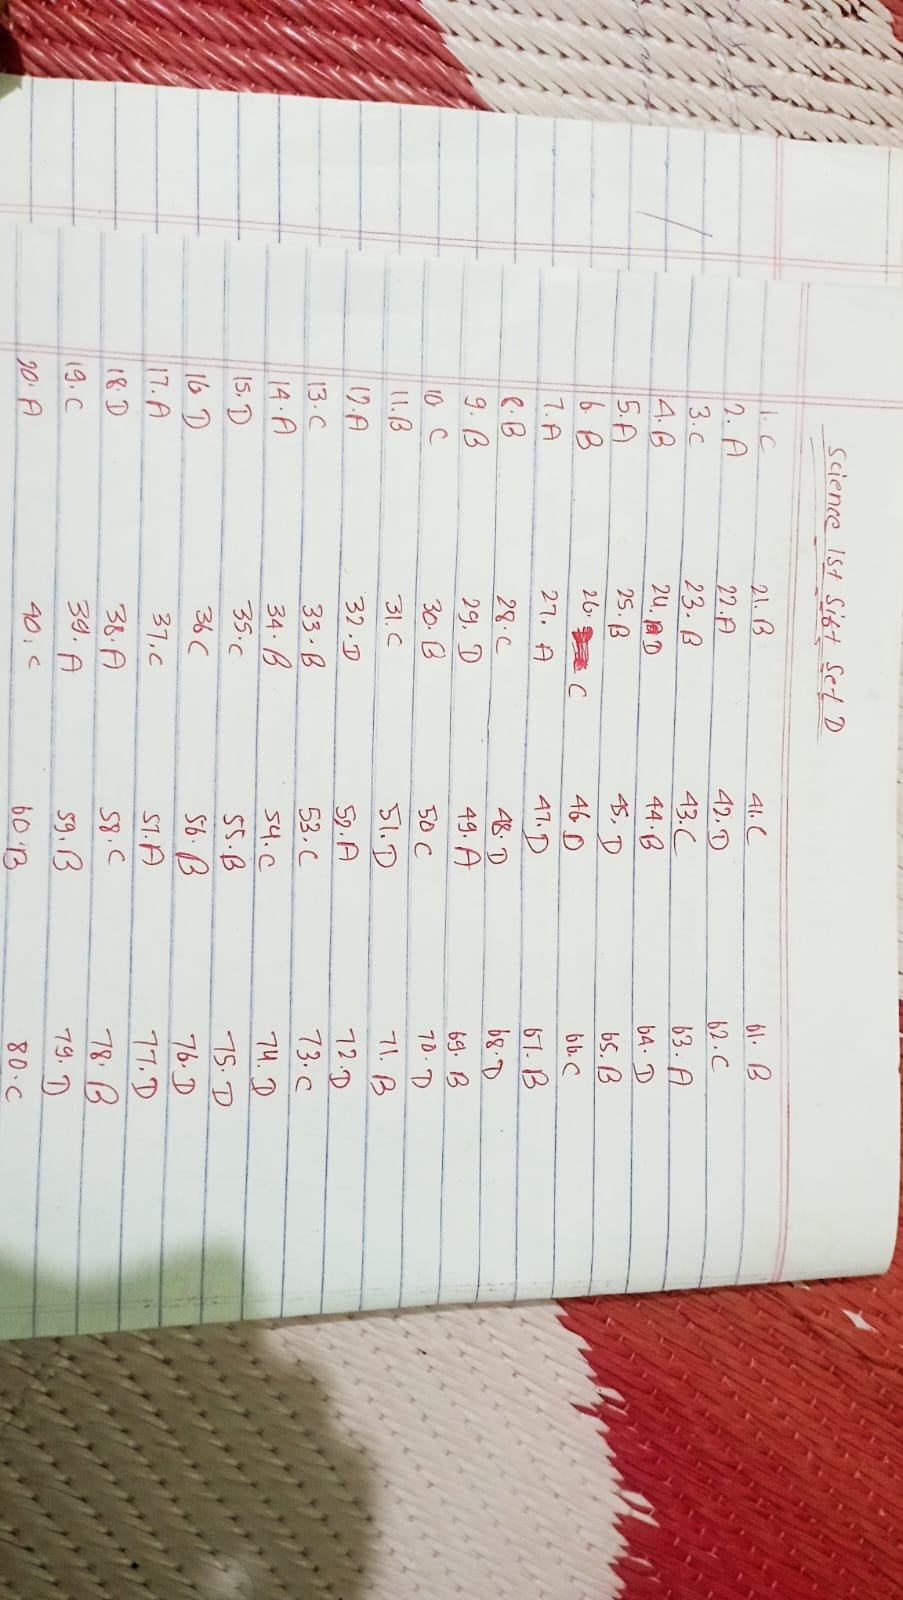 Science 1st Sift Set D
1. C 21. B 41. C 61. B
2. A 22. A 42. D 62. C
3. C 23. B 43. C 63. A
4. B 24. D 44. B 64. D
5. A 25. B 45. D 65. B
6. B 26. C 46 D 66. C
7. A 27. A 47. D 67. B
8. B 28. C 48. D 68. D
9. B 29. D 49. A 69. B
10. C 30. B 50 C 70. D
11. B 31. C 51. D 71. B
12. A 32. D 52. A 72. D
13. C 33. B 53. C 73. C
14. A 34. B 54. C 74. D
15. D 35. C 55. B 75. D
16. D 36 C 56. B 76. D
17. A 37. C 57. A 77. D
18. D 38. A 58. C 78. B
19. C 39. A 59. B 79. D
20. A 40. C 60. B 80. C